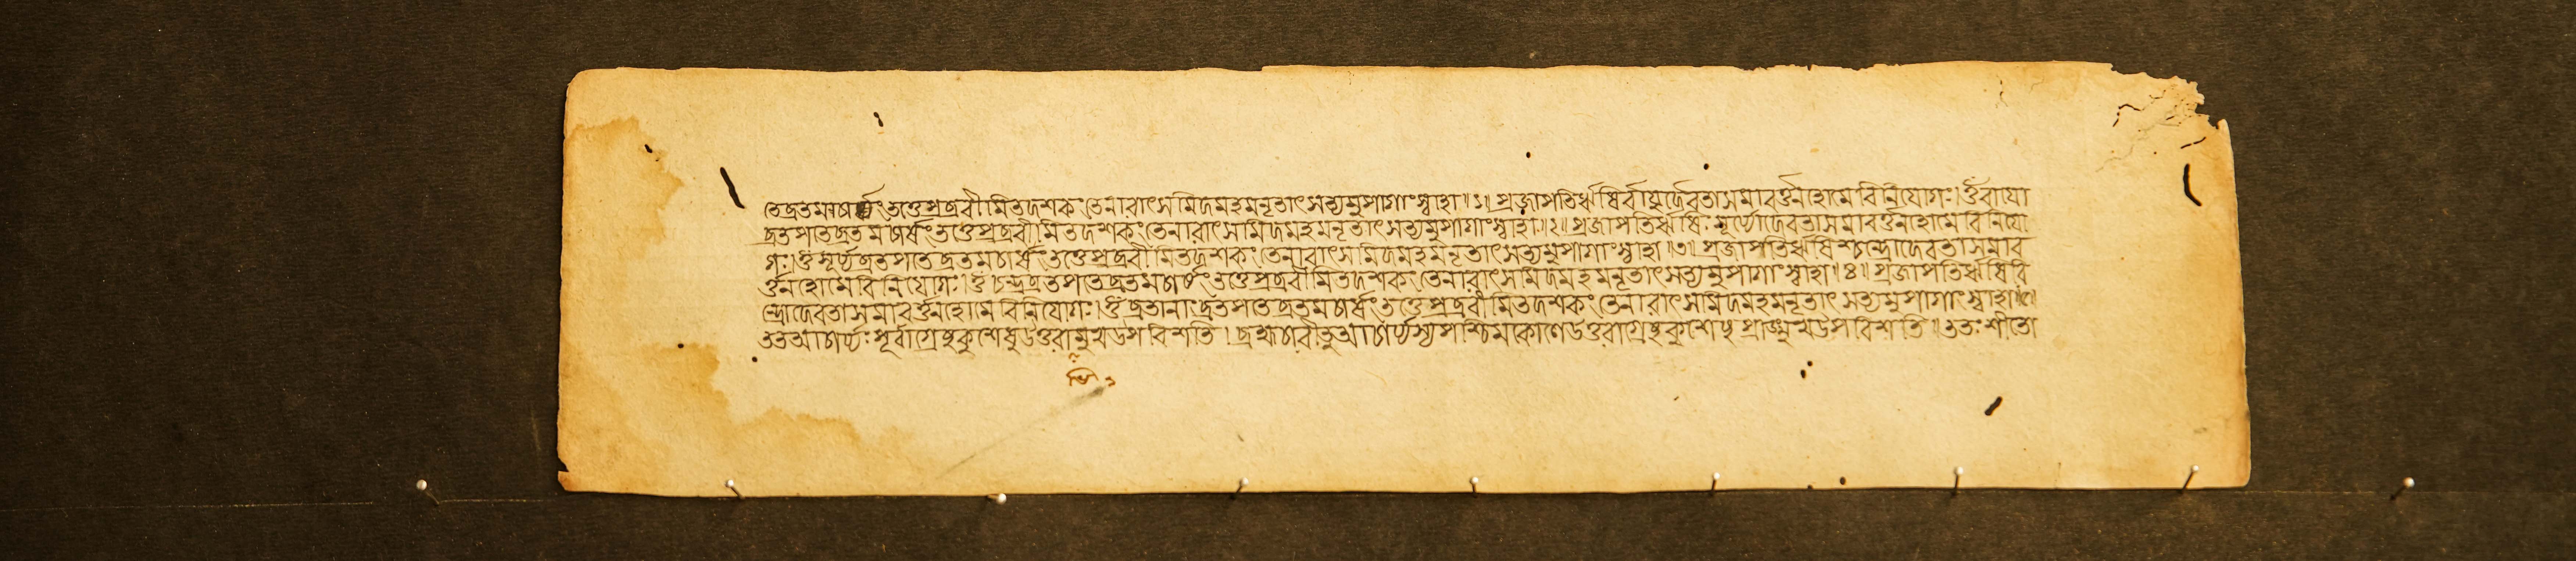 তেব্রতমচার্ষং তত্তেপ্রব্রবীমিতদশকং তেনারাৎসমিদমহমনৃতাৎসত্যমুপাগাং স্বাহা॥২॥ প্রজাপতির্ঋষির্বায়ুর্দেবতাসমাবর্ত্তনহোমে বিনিযোগঃ।ওঁ বাযো
ব্রতপতেব্রতমচার্ষং তত্তেপ্রব্রবীমিতদশকং তেনারাৎসমিদমহমনৃতাৎ সত্যমুপাগাং স্বাহা॥২॥ প্রজাপতির্ঋষিঃ সূর্য্যোদেবতাসমাবর্ত্তনহোমে বিনিযো
গঃ।ওঁ সূর্য্যব্রতপতেব্রতমচার্ষং তত্তেপ্রব্রবীমিতদশকং তেনারাৎসমিদমহমনৃতাৎসত্যমুপাগাং স্বাহা।৩। প্রজাপতির্ঋষিশ্চন্দ্রোদেবতাসমাব
র্ত্তনহোমে বিনিযোগঃ।ওঁ চন্দ্রব্রতপতেব্রতমচার্ষং তত্তেপ্রব্রবীমিতদশকং তেনারাৎসমিদমহমনৃতাৎসত্যমুপাগাং স্বাহা।৪। প্রজাপতির্ঋষিরি
ন্দ্রোদেবতাসমাবর্ত্তনহোমে বিনিযোগঃ।ওঁ ব্রতানাং ব্রতপতেব্রতমচার্ষং তত্তেপ্রব্রবীমিতদশকং তেনারাৎসমিদমহমনৃতাৎ সত্যমুপাগাং স্বাহা॥৫॥
ততআচার্য্যঃ পূর্বাগ্রেষুকুশেষুউত্তরামুখউপবিশতি। ব্রহ্মচারীতুআচার্য্যস্যপশ্চিমকোণেউত্তরাগ্রেষুকুশেষু প্রাঙ্মুখউপবিশতি॥ ততঃ শীতো